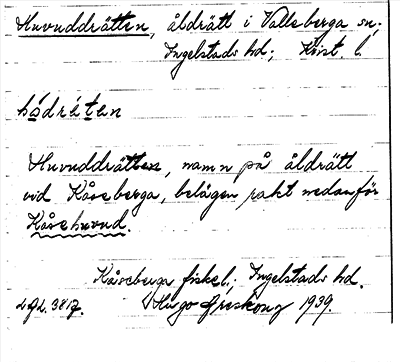 Huvuddrätten, åldrätt i Valleberga sn;
Ingelstads hd; Krist. l.
hôdrétен
Huvuddrätten, namn på åldrätt
vid Kåseberga, belägen rakt nedanför
Kåsehuvud.
Kåseberga fiskel.; Ingelstads hd.
Hugo Areskoug 1939.